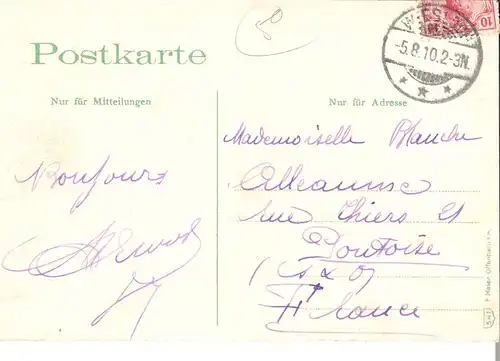 Postkarte
Nur für Mitteilungen
Nur für Adresse
-5.8.10.2-3N.
10
Bonjour
Mademoiselle Blanche
Alleaume
rue Thiers 21
Pontoise
France